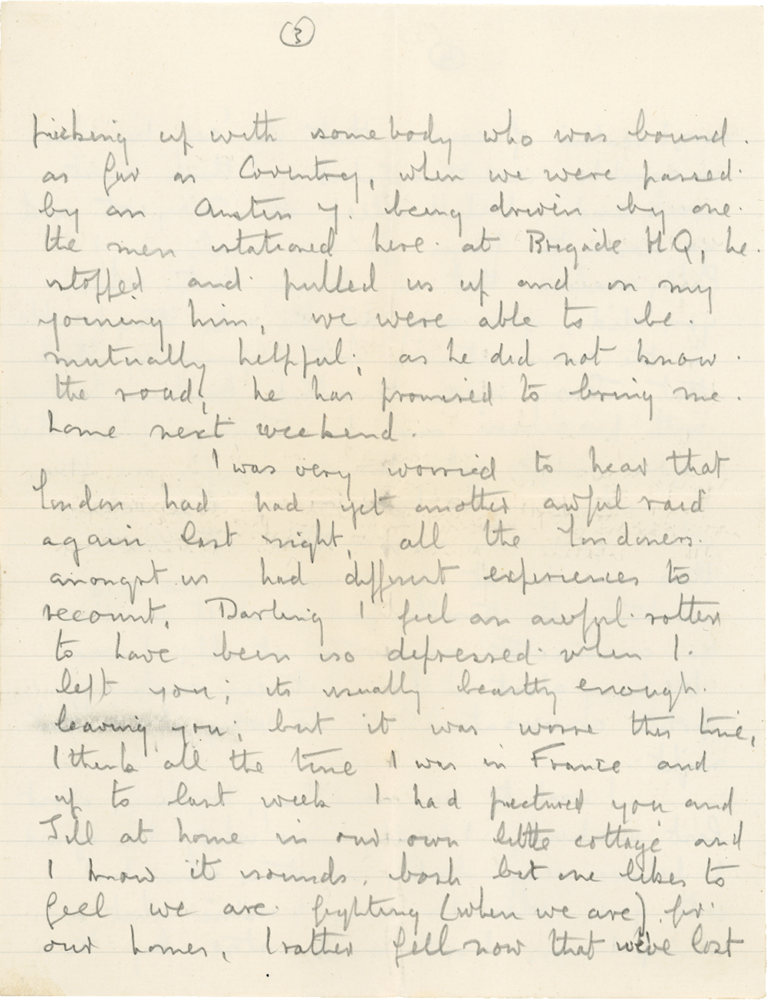 3
picking up with somebody who was bound.
as far as Coventry, when we were passed.
by an Austin 7. being driven by one.
the men stationed here. at Brigade HQ, he.
stopped and. pulled us up and on my
joining him, we were able to be.
mutually helpful; as he did not know.
the road; he has promised to bring me.
home next weekend.
I was very worried to hear that
London had had yet another awful raid
again last night, all the Londoners.
amongst us had different experiences to
recount. Darling I feel an awful rotter
to have been so depressed when I.
left you; its usually beastly enough.
leaving you; but it was worse this time,
I think all the time I was in France and
up to last week I had pictured you and
Jill at home in our own little cottage and
I know it sounds. bosh but one likes to
feel we are. fighting (when we are) for
our homes, I rather fell now that we've lost